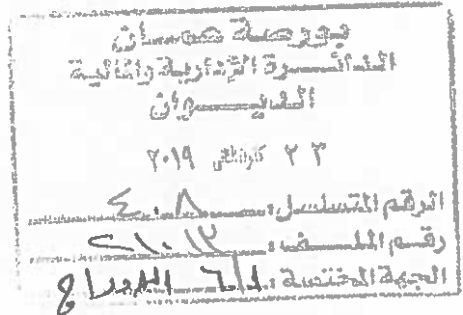 بورصة عمان
الدائرة الإدارية والمالية
الديوان
٢٣ كانون الثاني ٢٠١٩
الرقم المتسلسل: ٤٠٨
رقم الملف: ٢١٠١٢
الجهة المختصة: